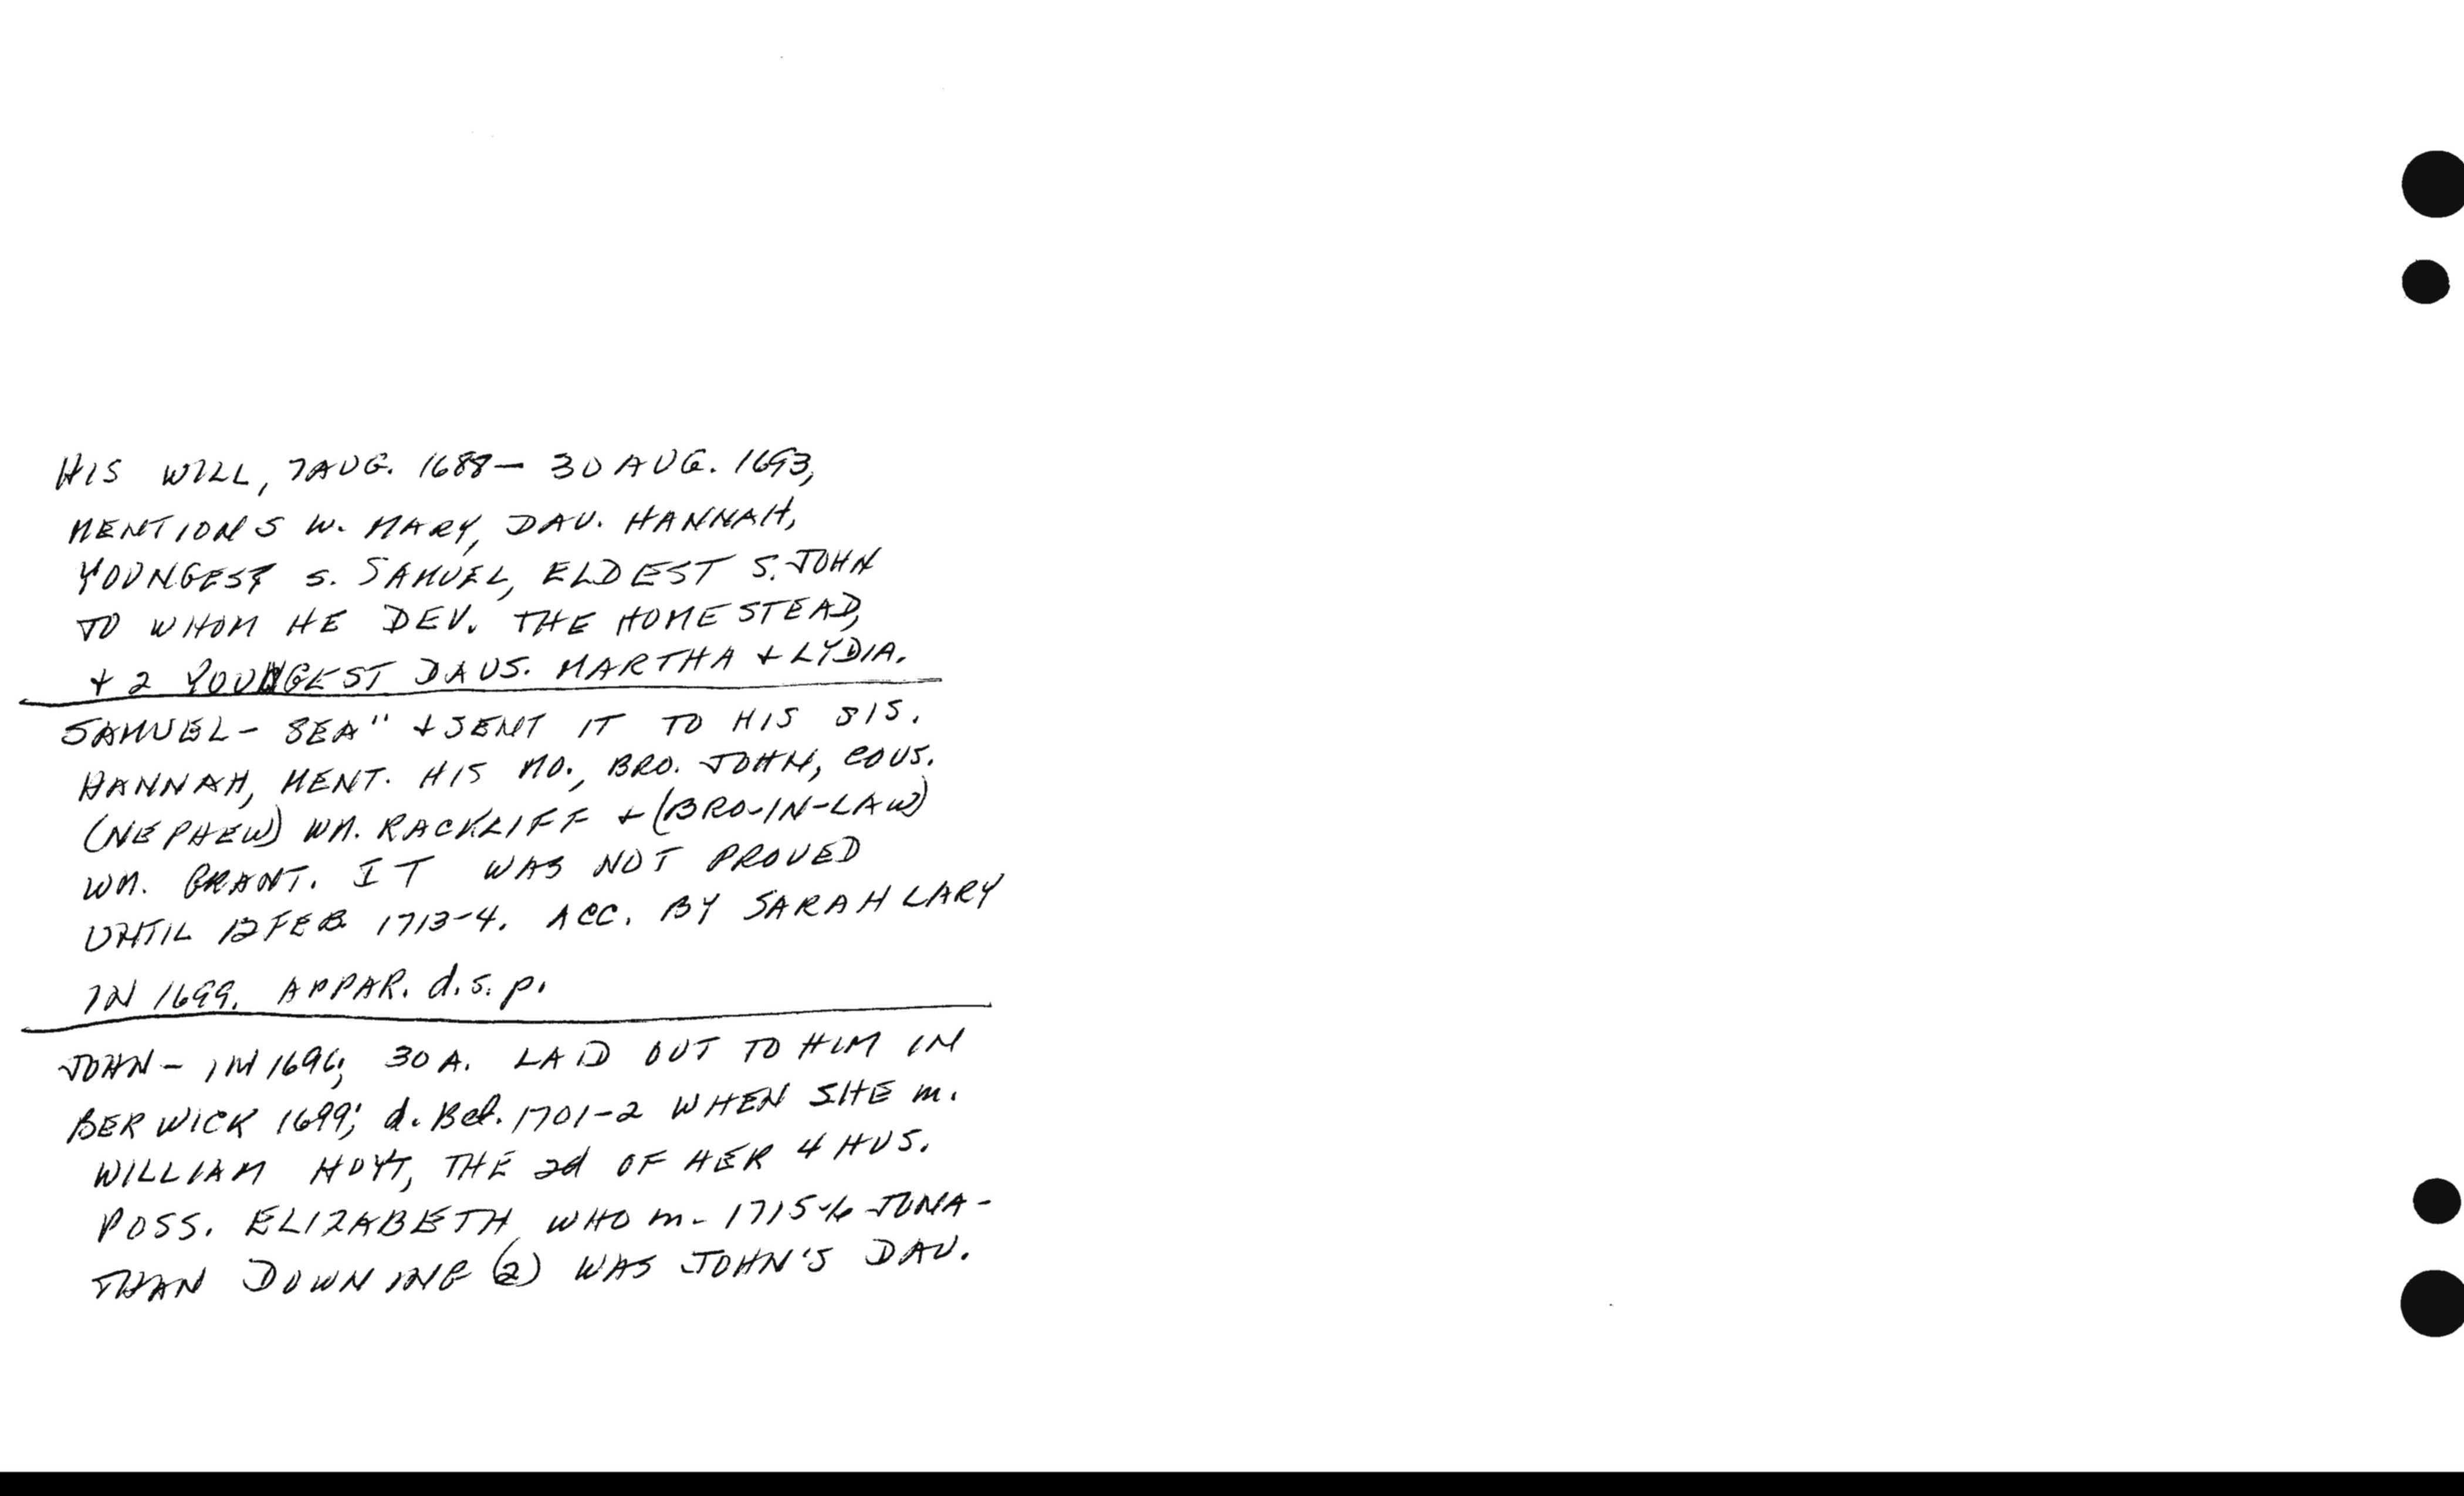 HIS WILL, 7 AUG. 1688 — 30 AUG. 1693,
MENTIONS W. MARY, DAU. HANNAH,
YOUNGEST S. SAMUEL, ELDEST S. JOHN
TO WHOM HE DEV. THE HOMESTEAD,
+ 2 YOUNGEST DAUS. MARTHA + LYDIA.
SAMUEL - SEA" + SENT IT TO HIS SIS.
HANNAH, MENT. HIS MO., BRO. JOHN, COUS.
(NEPHEW) WM. RACKLIFF + (BRO-IN-LAW)
WM. GRANT. IT WAS NOT PROVED
UNTIL 12 FEB. 1713-4. ACC. BY SARAH LARY
IN 1699. APPAR. d.s.p.
JOHN - IN 1696; 30 A. LAID OUT TO HIM IN
BERWICK 1699; d. Bef. 1701-2 WHEN SHE m.
WILLIAM HOYT, THE 2d OF HER 4 HUS.
POSS. ELIZABETH WHO m. 1715-6 JONA-
THAN DOWNING (2) WAS JOHN'S DAU.